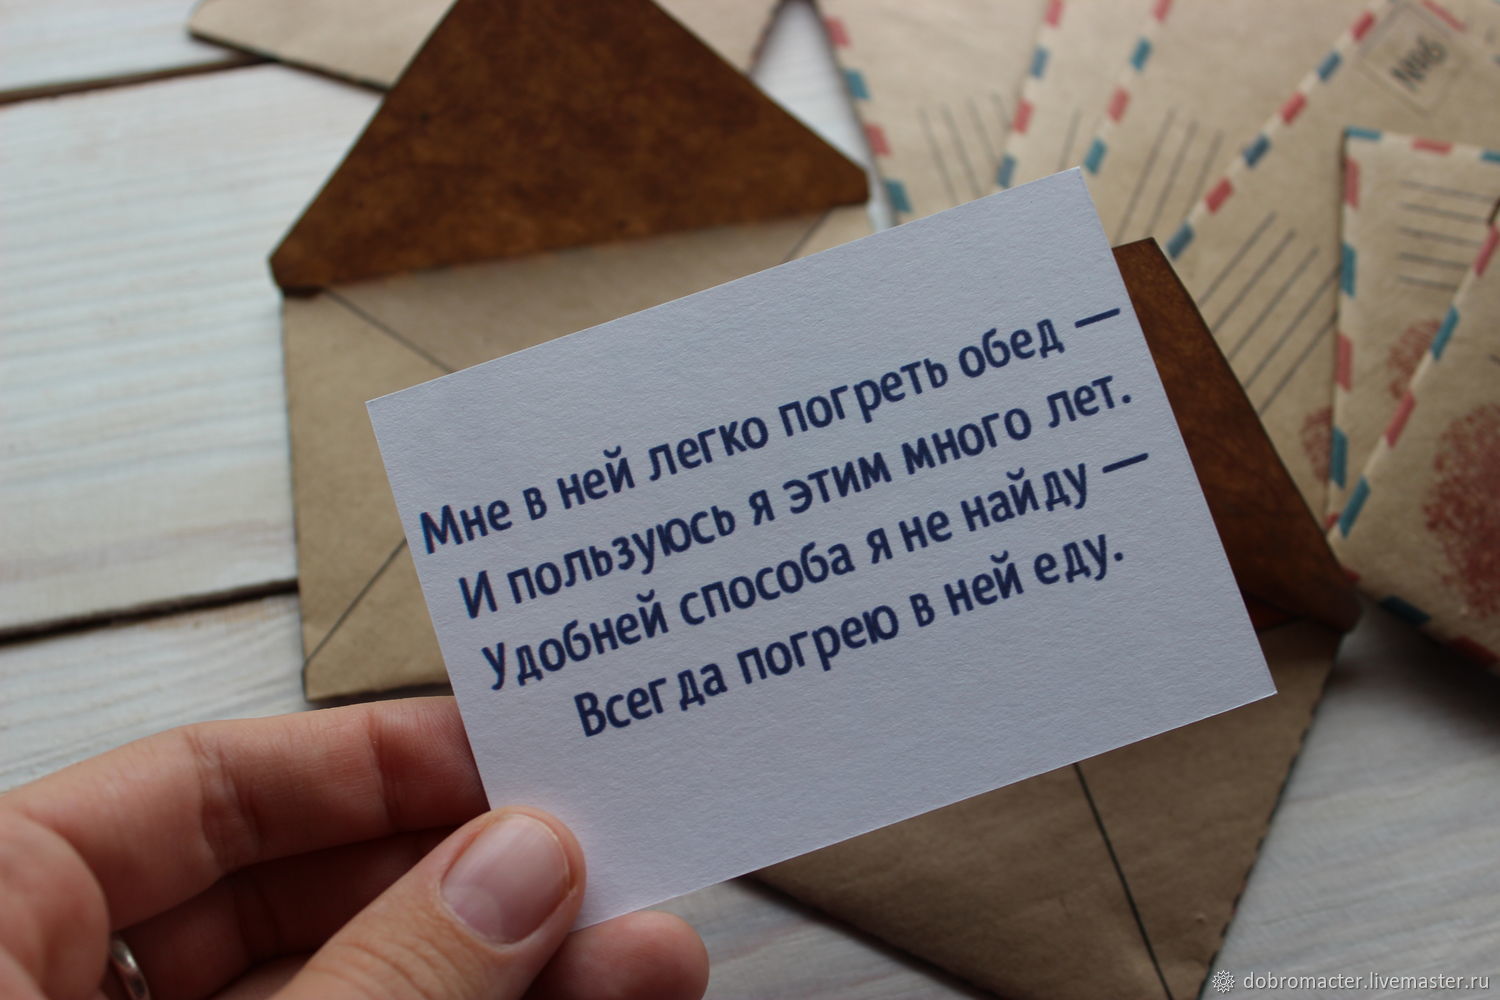 №6
Мне в ней легко погреть обед —
И пользуюсь я этим много лет.
Удобней способа я не найду —
Всегда погрею в ней еду.
dobromacter.livemaster.ru